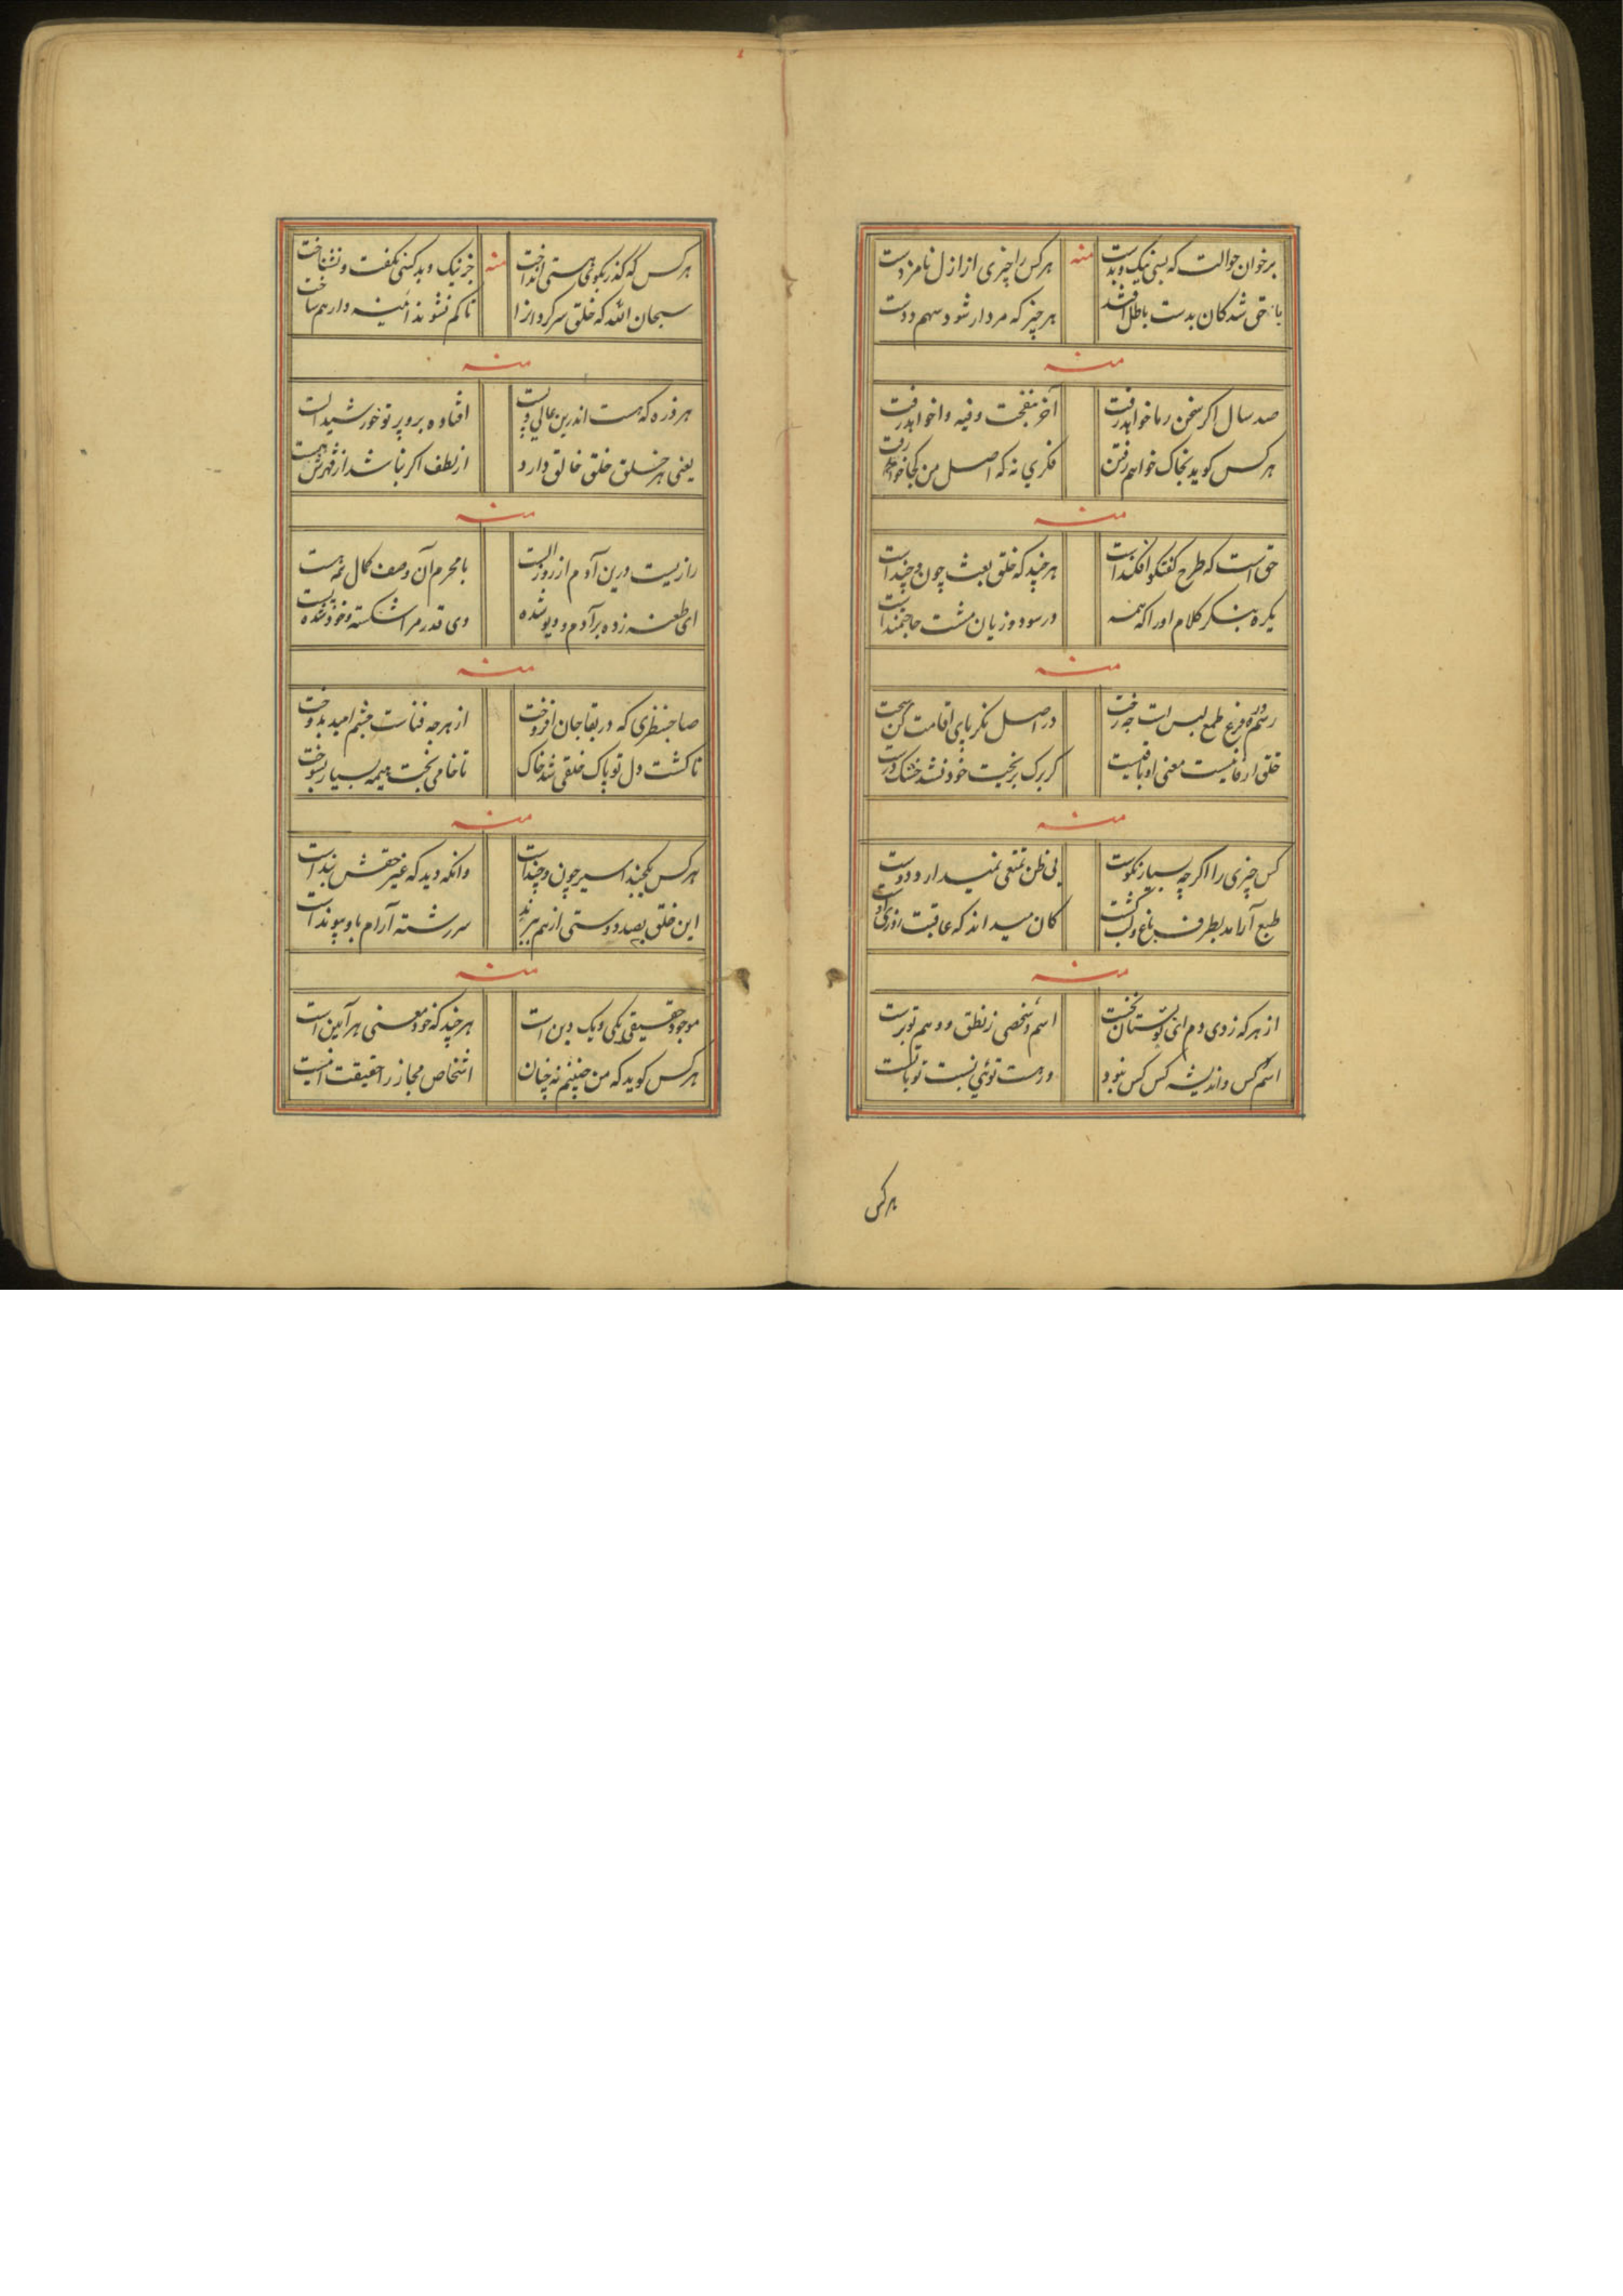 برخوان حوالت که بسی نیک و بدست
منه
هر کس را چیزی از ازل نامزدست
حق شد کان بدست باطل افتد
هر چیز که مردار شود سهم ددست
منه
صد سال اکر سخن رما خواهد رفت
آخر بنفخت وفیه وا خواهد رفت
هر کس کوید بخاک خواهم رفتن
فکری نه که اصل من کجا خواهد رفت
منه
حق است که طرح کفتکو افکنداست
هر چند که خلق بعث چون و چنداست
یکره بنکر کلام او را که همه
در سود و زیان مشت حاجتمنداست
منه
رسم و ره فرع طمع لیس است چه رفت
در اصل نکر پای اقامت کن سخت
خلق ار فانیست معنی او باقیست
کر برک بریخت خود نشد خشک درخت
منه
کس چیزی را اکر چه بسیار نکوست
بی ظن تمتعی نمیدارد دوست
طبع آرامد بطرف باغ و لب کشت
کان میداند که عاقبت روزی اوست
منه
از هر که زدی دم ای تو بستان نخست
اسم و شخصی ز نطق و وهم تو برست
اسم کس و اندیشه کس کس نبود
ور هست توئی نسبت تو با تست
هر کس
هر کس که کذر بکوی هستی انداخت
منه
جز نیک و بد کسی نکفت و نشناخت
سبحان الله که خلق سرکردانرا
تا کم نشوند آئینه دار هم ساخت
منه
هر ذره که هست اندرین عالی و پست
افتاده برو پرتو خورشید الست
یعنی هر خلق خلق خالق دارد
از لطف اکر نباشد از قهرش هست
منه
رازیست درین آدم از روز الست
با محرم آن وصف کمال همه هست
ای طعنه زده بر آدم و دیو شده
وی قدر مرا شکسته و خود شده پست
منه
صاحبنظری که در بقا جان افروخت
از هر چه فناست چشم امید بدوخت
تا کشت دل تو پاک خلقی شد خاک
تا خامی پخت هیمه بسیار بسوخت
منه
هر کس بکچند اسیر چون و چنداست
وانکه دید که غیر حقش بنداست
این خلق بصد دوستی از هم ببرند
سررشته آرام باو پیونداست
منه
موجود حقیقی یکی و یک دین است
هر چند که خود معنی هر آیین است
هر کس کوید که من چنینم نه چنان
اشخاص مجاز را حقیقت اینست